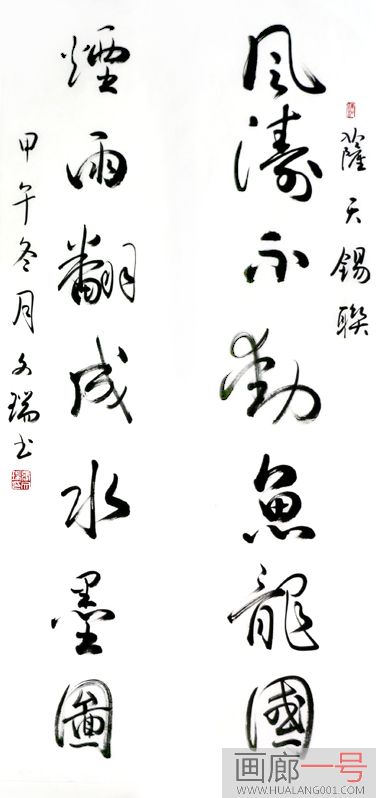 薩天錫聯
風濤不動魚龍國
煙雨翻成水墨圖
甲午冬月文瑞书
画廊一号
WWW.HUALANG001.COM